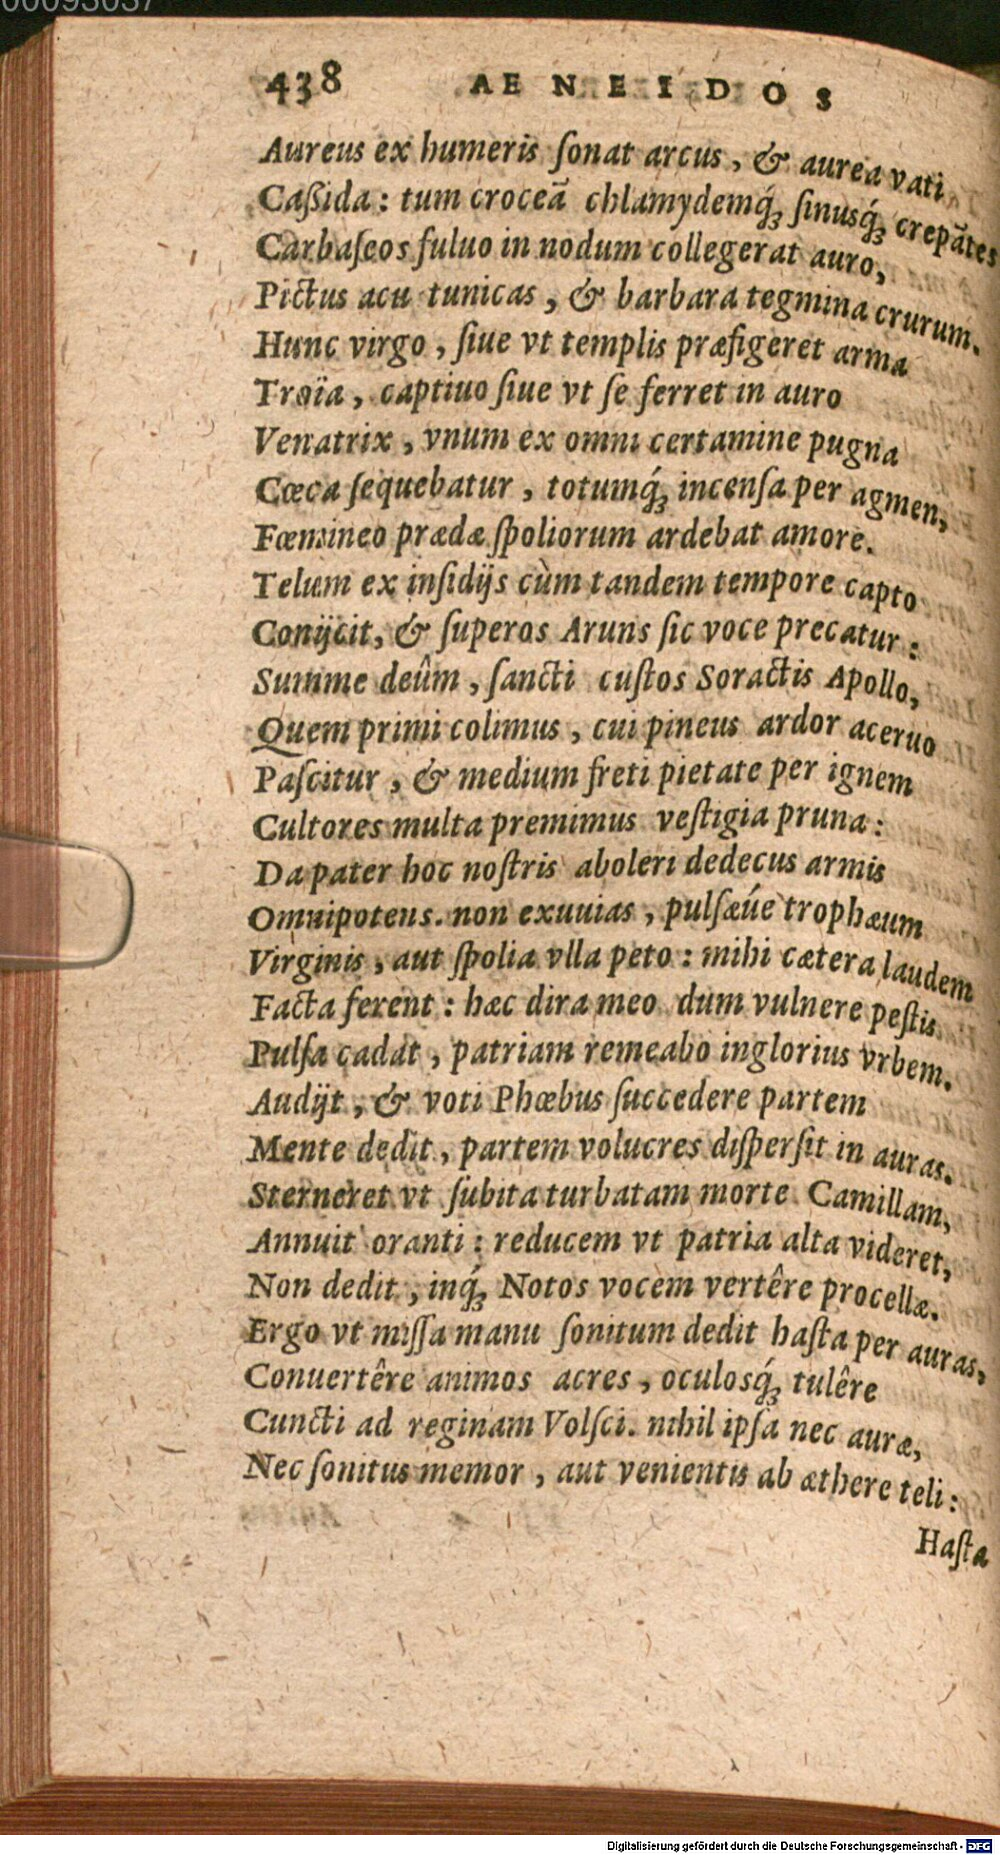 438 AENEIDOS
Aureus ex humeris ſonat arcus, & aurea vati
Caßida: tum croceā chlamydemq́ꝫ ſinusq́ꝫ crepātes
Carbaſeos fuluo in nodum collegerat auro,
Pictus acu tunicas, & barbara tegmina crurum.
Hunc virgo, ſiue vt templis præfigeret arma
Troïa, captiuo ſiue vt ſe ferret in auro
Venatrix, vnum ex omni certamine pugna
Cœca ſequebatur, totumq́ꝫ incenſa per agmen,
Fœmineo prædæ ſpoliorum ardebat amore.
Telum ex inſidijs cùm tandem tempore capto
Conijcit, & ſuperos Aruns ſic voce precatur:
Summe deûm, ſancti cuſtos Soractis Apollo,
Quem primi colimus, cui pineus ardor aceruo
Paſcitur, & medium freti pietate per ignem
Cultores multa premimus veſtigia pruna:
Da pater hoc noſtris aboleri dedecus armis
Omnipotens. non exuuias, pulſæúe trophæum
Virginis, aut ſpolia vlla peto: mihi cætera laudem
Facta ferent: hæc dira meo dum vulnere peſtis
Pulſa cadat, patriam remeabo inglorius vrbem.
Audijt, & voti Phœbus ſuccedere partem
Mente dedit, partem volucres diſperſit in auras.
Sterneret vt ſubita turbatam morte Camillam,
Annuit oranti: reducem vt patria alta videret,
Non dedit, inq́ꝫ Notos vocem vertêre procellæ.
Ergo vt miſſa manu ſonitum dedit haſta per auras,
Conuertêre animos acres, oculosq́ꝫ tulêre
Cuncti ad reginam Volſci. nihil ipſa nec auræ,
Nec ſonitus memor, aut venientis ab æthere teli:
Haſta
Digitalisierung gefördert durch die Deutsche Forschungsgemeinschaft - DFG